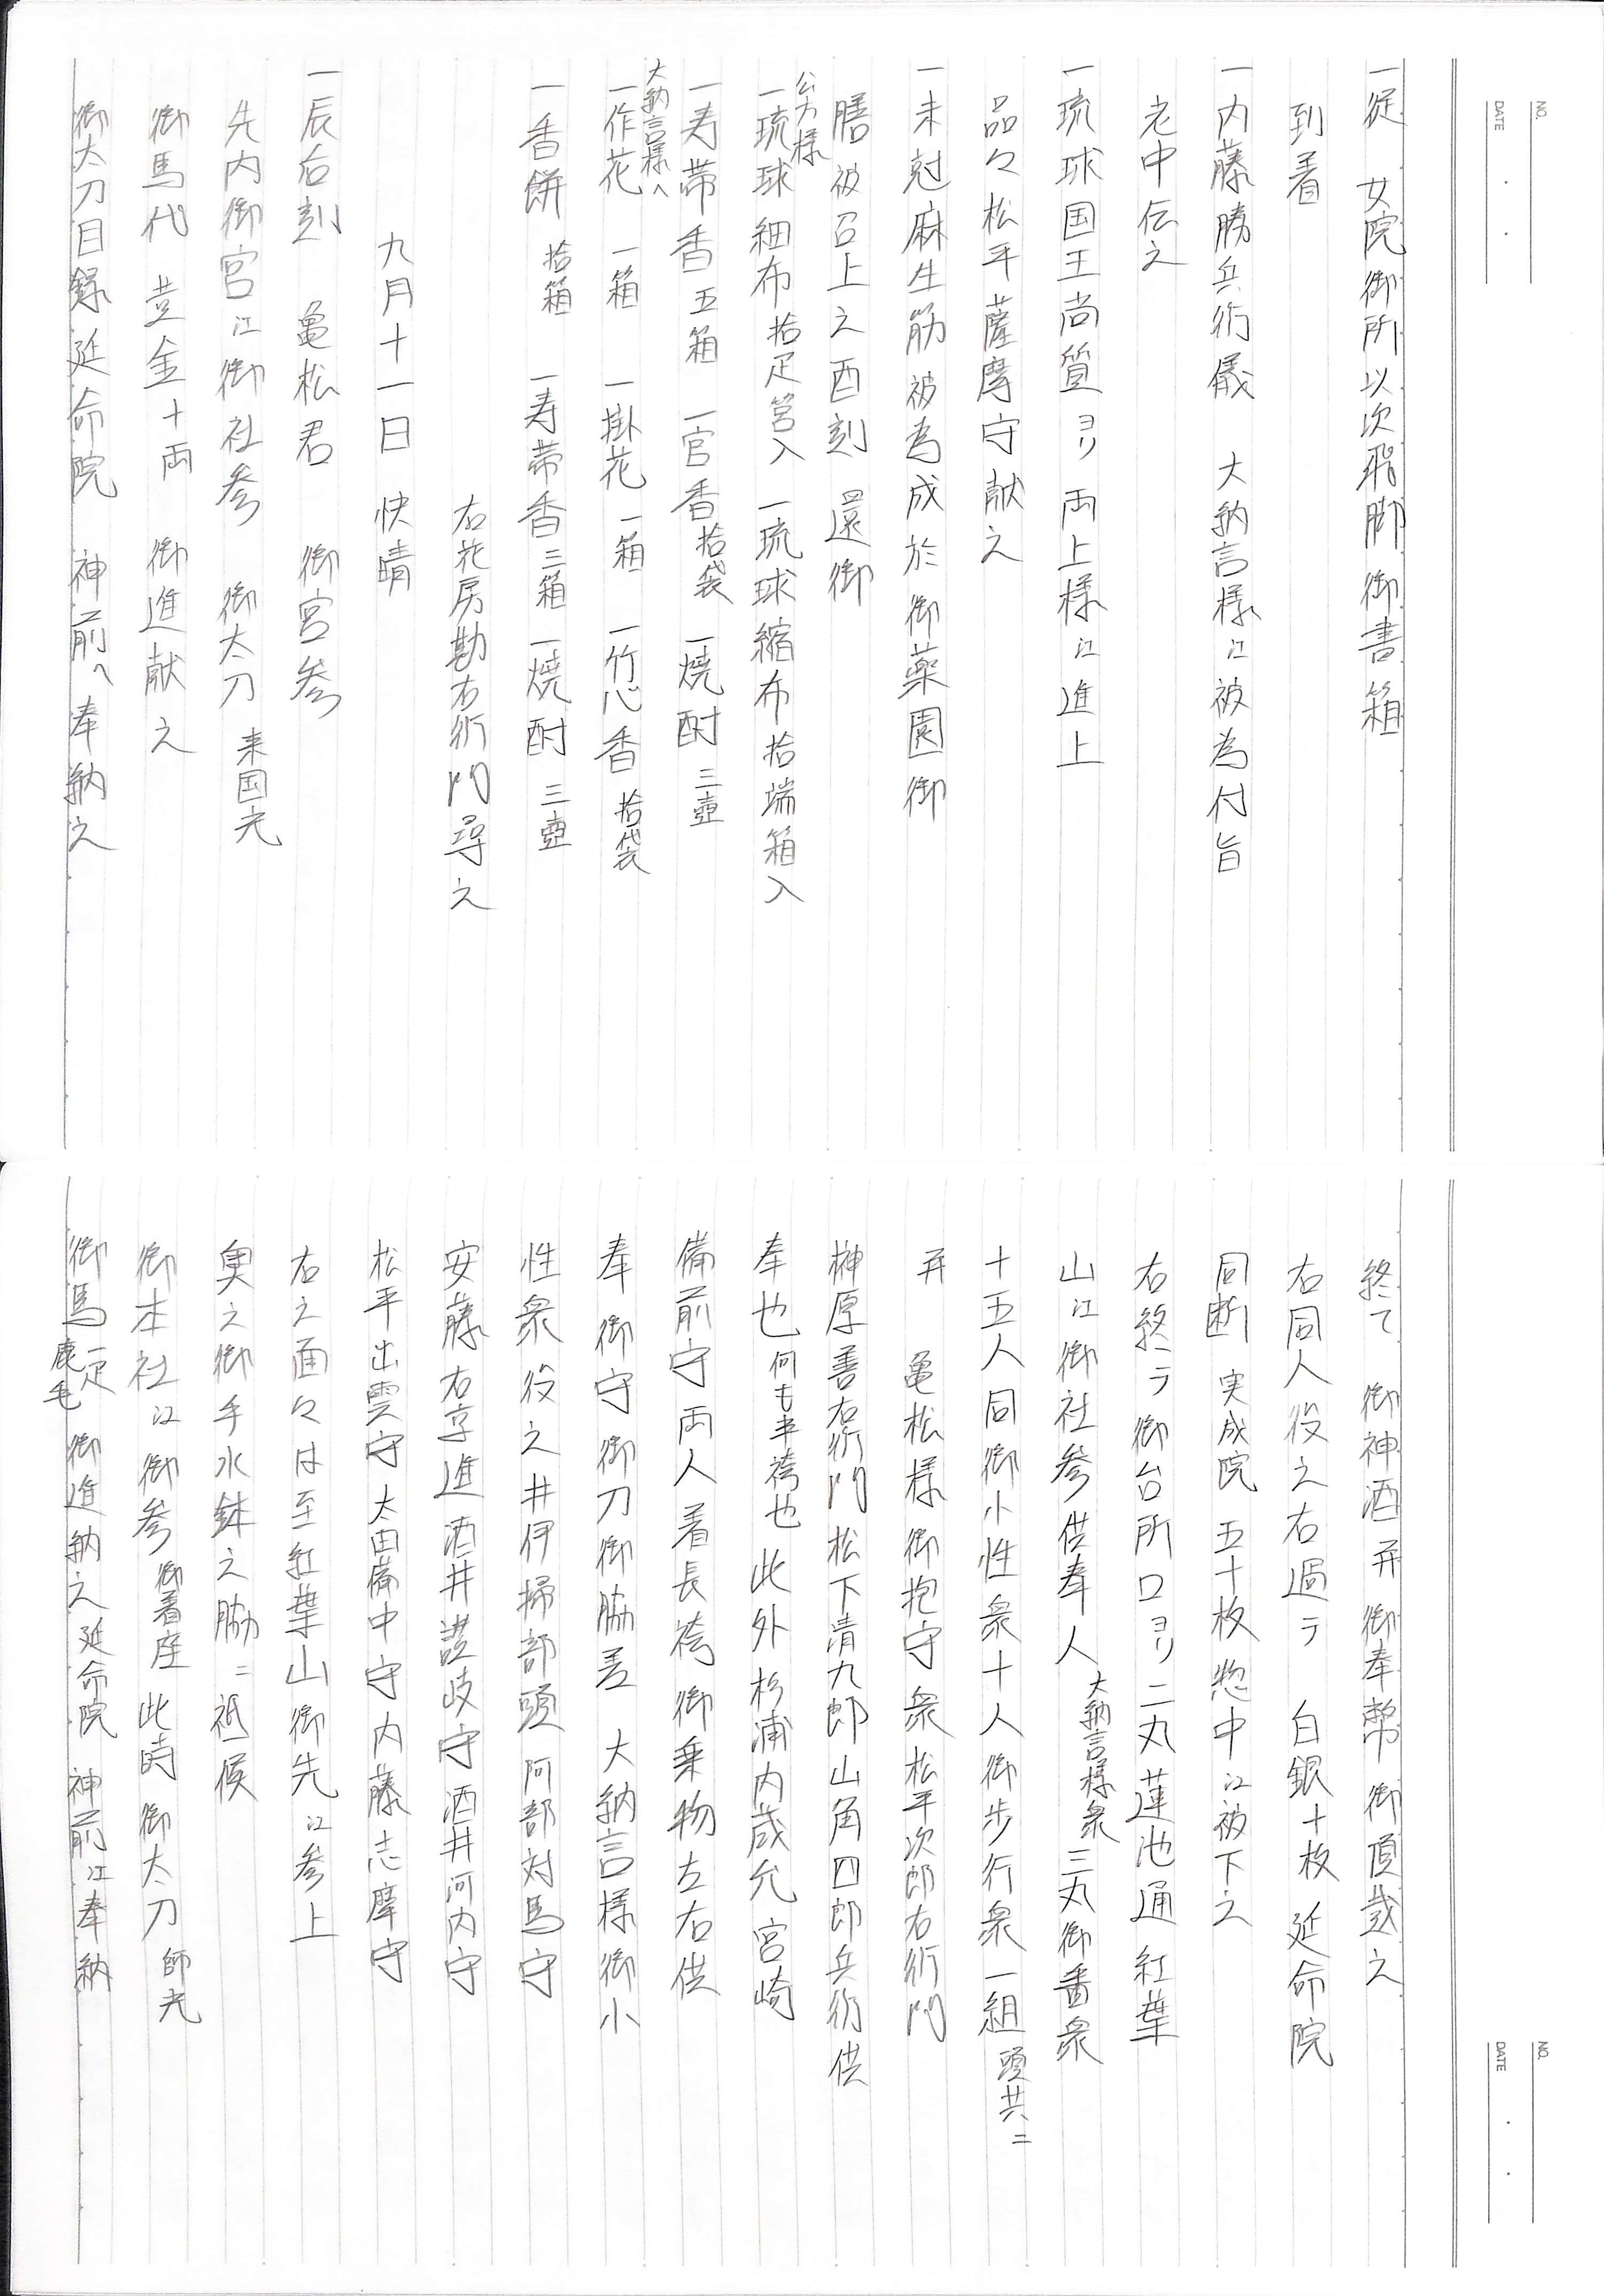 NO.
DATE
一従 女院御所以次飛脚御書箱
到着
一内藤勝兵衛儀 大納言様江被為付旨
老中伝之
一琉球国王尚質ヨリ両上様江進上
品々松平薩摩守献之
一未尅麻生筋被為成於御薬園御
膳被召上之酉刻還御
公方様
一琉球細布拾疋筥入 一琉球縮布拾端箱入
一寿帯香五箱 一官香拾袋 一焼酎三壺
大納言様へ
一作花 一箱 一掛花一箱 一竹心香拾袋
一香餅 拾箱 一寿帯香三箱 一焼酎三壺
右花房勘右衛門尋之
九月十一日 快晴
一辰后刻 亀松君 御宮参
先内御宮江御社参 御太刀 来国光
御馬代 黄金十両 御進献之
御太刀目録延命院 神前へ奉納之
NO.
DATE
終て 御神酒并御奉幣御頂戴之
右同人役之右過テ 白銀十枚延命院
同断 実成院 五十枚惣中江被下之
右終ラ御台所口ヨリ二丸蓮池通紅葉
山江御社参供奉人 大納言様衆 三丸御番衆
十五人同御小性衆十人御歩行衆一組頭共ニ
并 亀松様御抱守衆松平次郎右衛門
榊原善右衛門松下清九郎山角四郎兵衛供
奉也何も半袴也此外杉浦内蔵允宮崎
備前守両人着長袴御乗物左右供
奉御守御刀御脇差 大納言様御小
性衆役之井伊掃部頭阿部対馬守
安藤右京進酒井讃岐守酒井河内守
松平出雲守太田備中守内藤志摩守
右之面々は至紅葉山御先江参上
奥之御手水鉢之脇ニ祗候
御本社江御参御着座此時御太刀 師光
御馬一疋鹿毛御進納之延命院神前江奉納